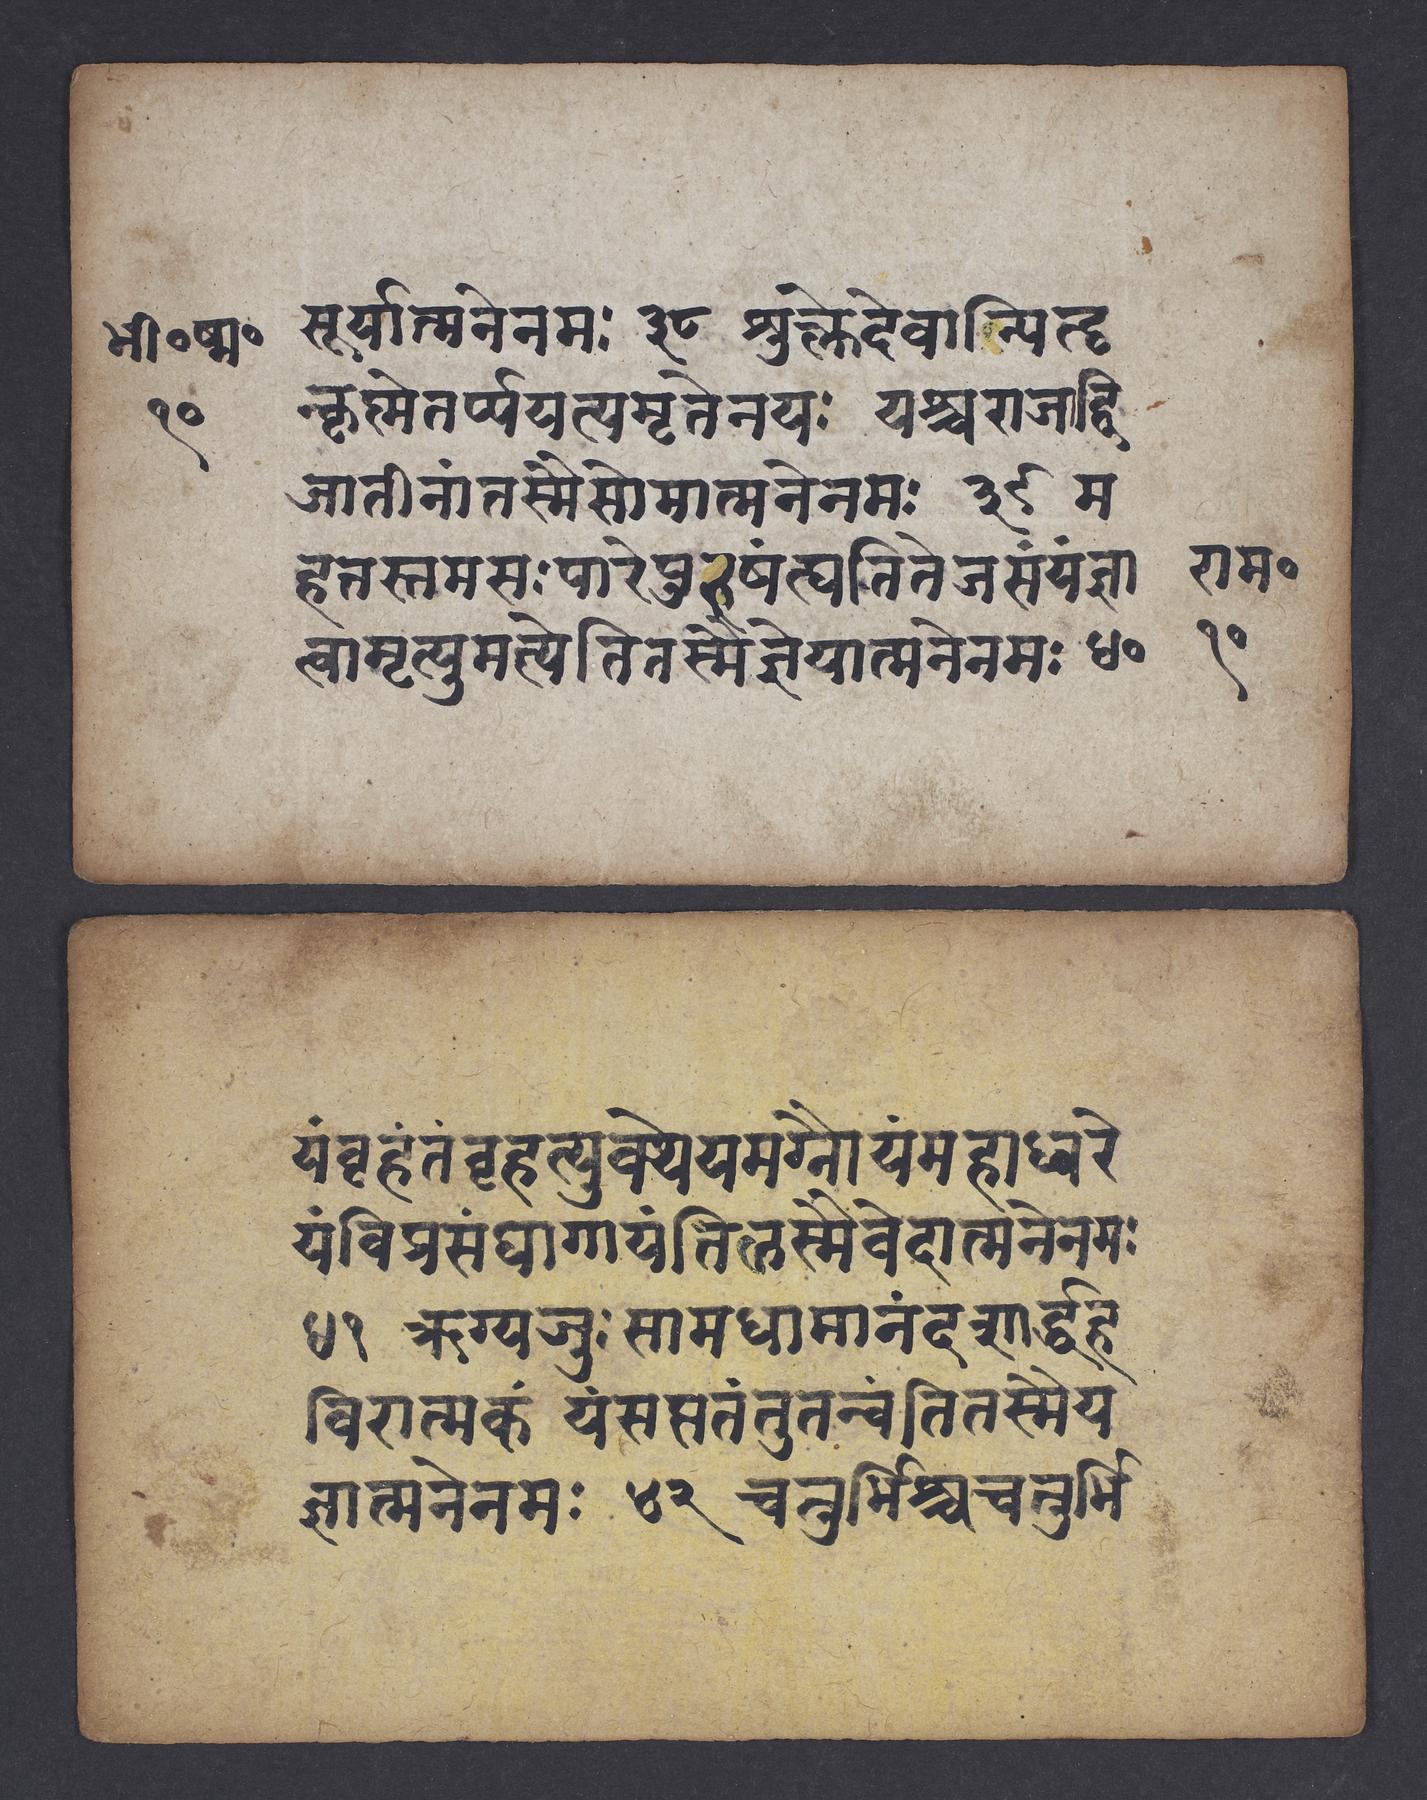 भी०ष्म०
१०
सूर्यात्मनेनमः ३८ शुक्लेदेवान्पितॄ
न्कृष्मेतर्प्पयत्यमृतेनयः यश्चराजाद्वि
जातीनांतस्मैसोमात्मनेनमः ३९ म
हतस्तमसःपारेपुरुषंत्घतितेजसंयंज्ञा
त्वामृत्युमत्येतितस्मैज्ञेयात्मनेनमः ४०
राम०
१०
यंवृहंतंवृहत्युक्थेयमग्नौयंमहाध्वरे
यंविप्रसंघागायंतितस्मैवेदात्मनेनमः
४१ ऋग्यजुःसामधामानंदशार्द्धह
विरात्मकं यंसप्ततंतुतन्वंतितस्मैय
ज्ञात्मनेनमः ४२ चतुर्भिश्चचतुर्भि